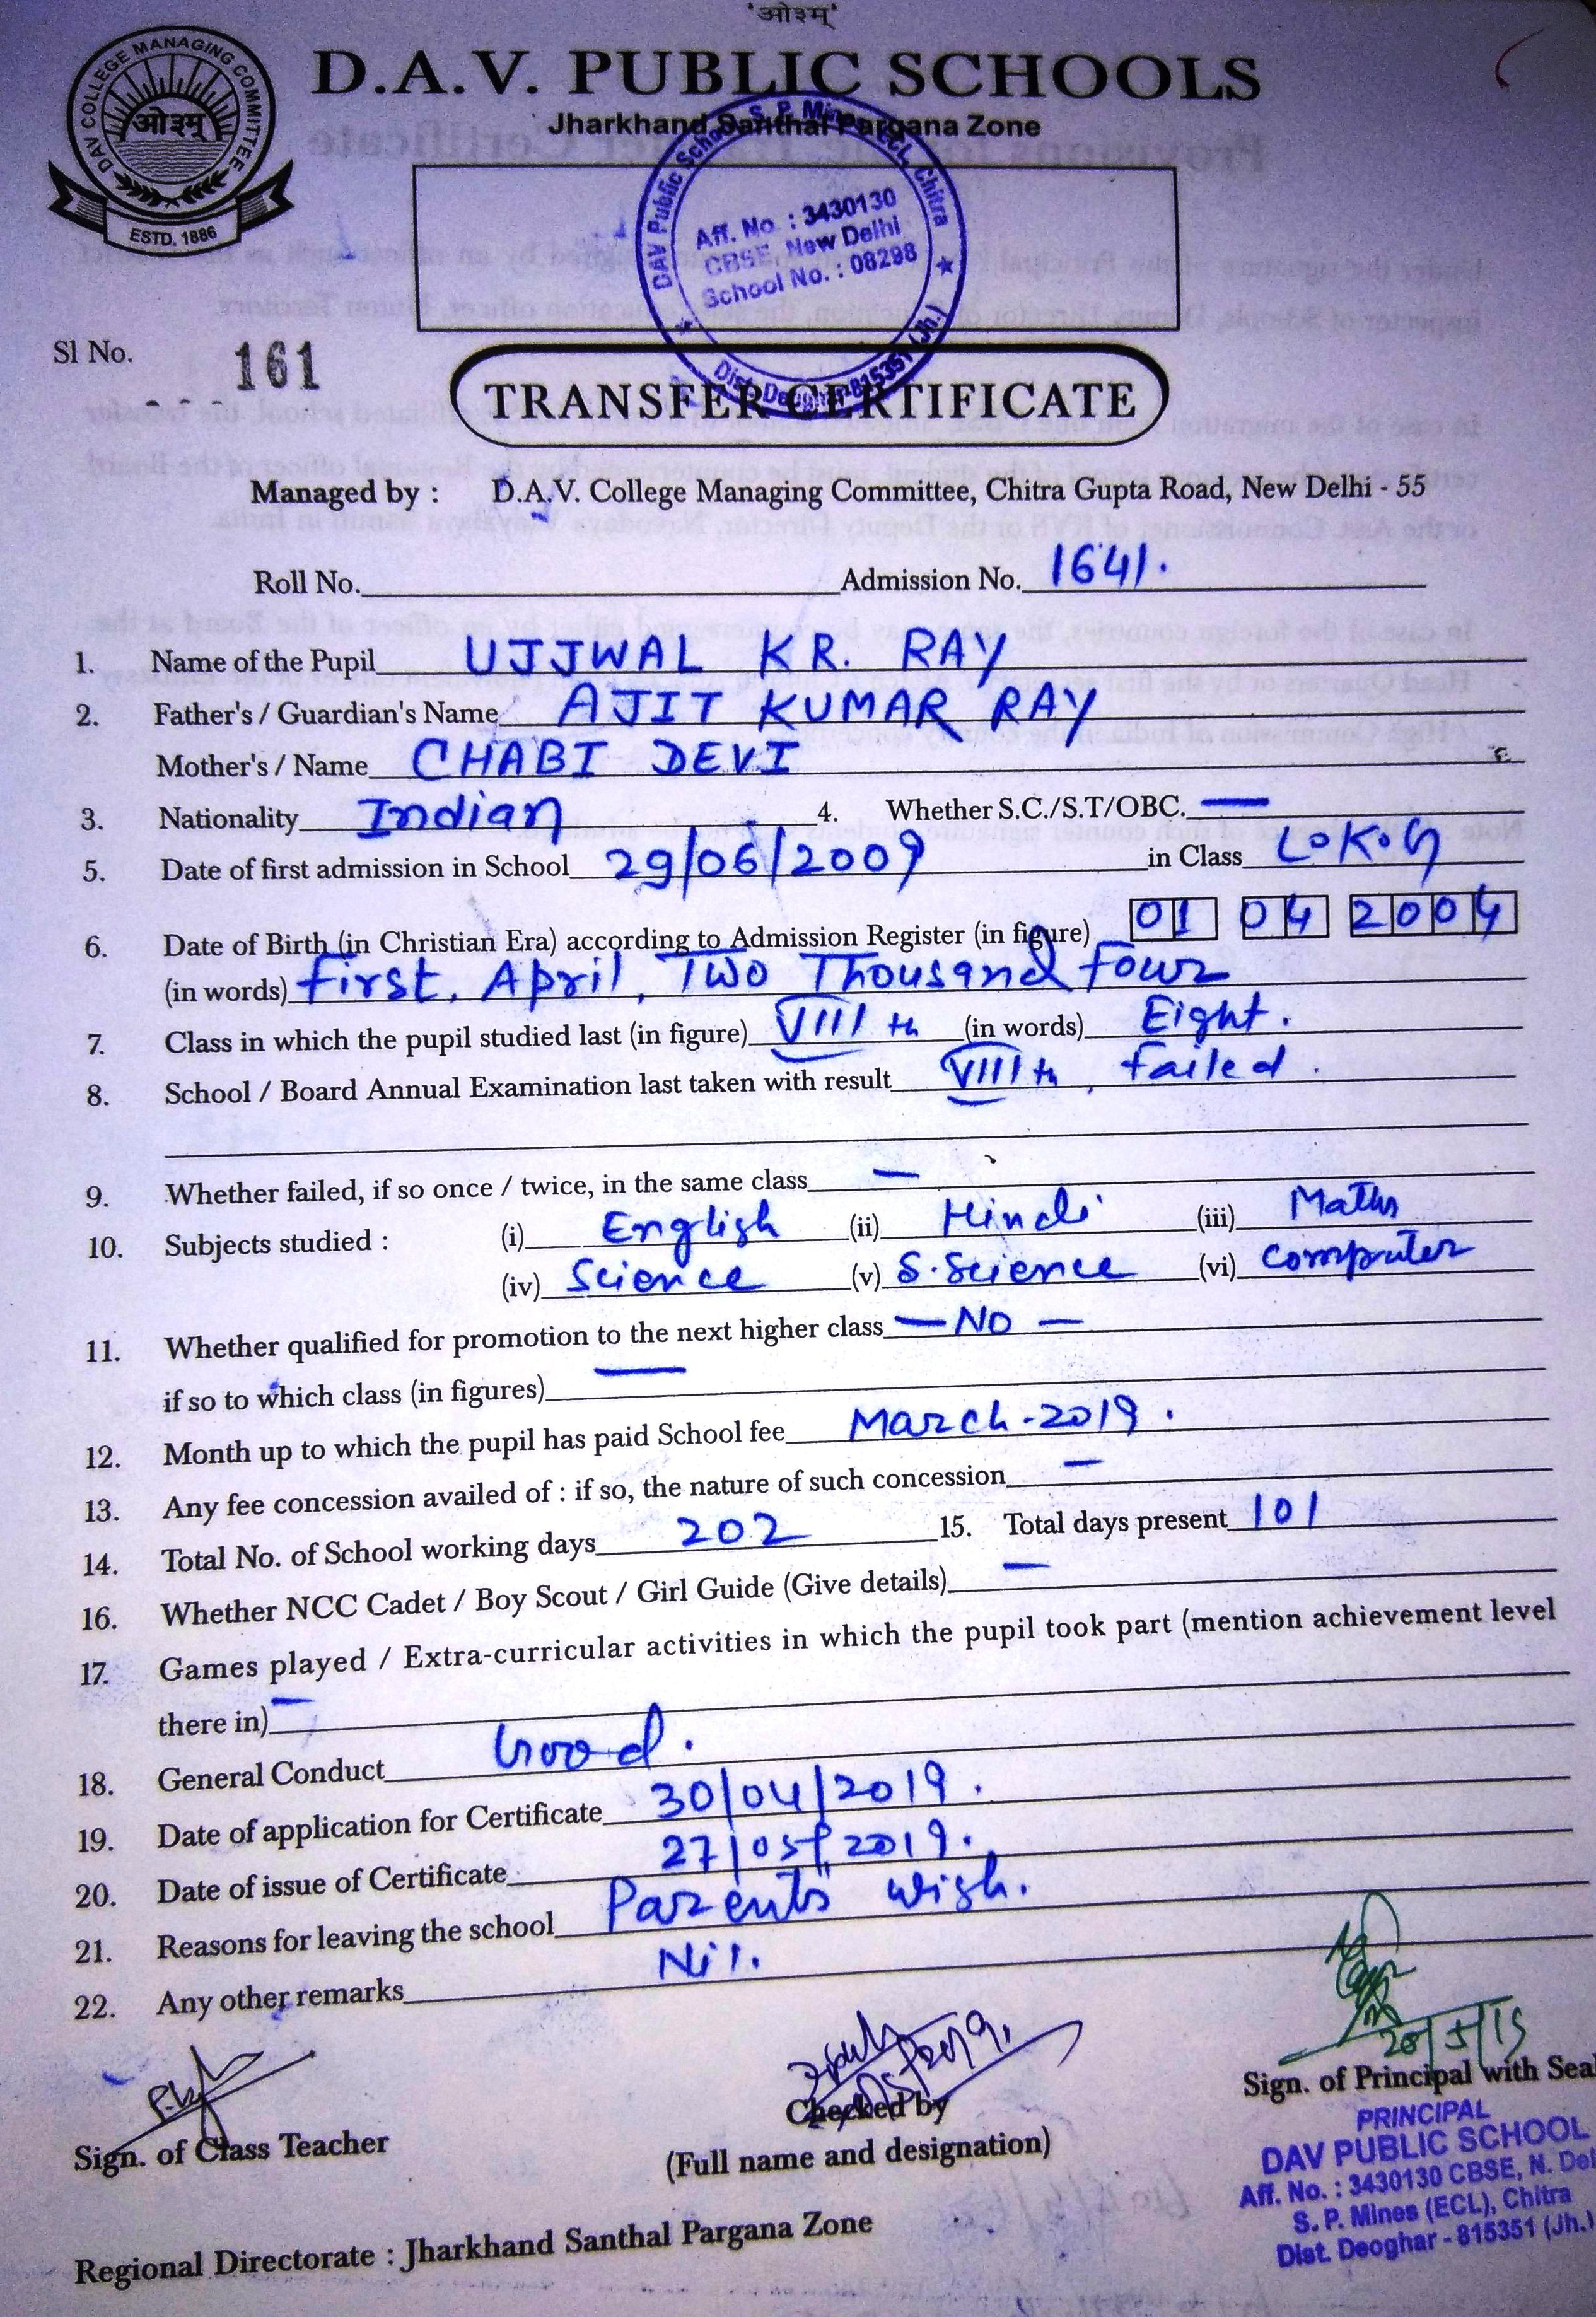 'ओ३म्'
DAV COLLEGE MANAGING COMMITTEE
ओ३म्
ESTD. 1886
D.A.V. PUBLIC SCHOOLS
Jharkhand Santhal Pargana Zone
DAV Public School, S. P. Mines ECL, Chitra
Aff. No. : 3430130
CBSE, New Delhi
School No. : 08298
Dist. Deoghar-815351 (Jh.)
Sl No. 161
TRANSFER CERTIFICATE
Managed by : D.A.V. College Managing Committee, Chitra Gupta Road, New Delhi - 55
Roll No. Admission No. 1641.
1. Name of the Pupil UJJWAL KR. RAY
2. Father's / Guardian's Name AJIT KUMAR RAY
Mother's / Name CHABI DEVI
3. Nationality Indian 4. Whether S.C./S.T/OBC. —
5. Date of first admission in School 29/06/2009 in Class L.K.G
6. Date of Birth (in Christian Era) according to Admission Register (in figure) 01 04 2004
(in words) First, April, Two Thousand four
7. Class in which the pupil studied last (in figure) VIII th (in words) Eight.
8. School / Board Annual Examination last taken with result VIII th, failed.
9. Whether failed, if so once / twice, in the same class —
10. Subjects studied : (i) English (ii) Hindi (iii) Maths
(iv) Science (v) S. Science (vi) Computer
11. Whether qualified for promotion to the next higher class — NO —
if so to which class (in figures) —
12. Month up to which the pupil has paid School fee March-2019.
13. Any fee concession availed of : if so, the nature of such concession —
14. Total No. of School working days 202 15. Total days present 101
16. Whether NCC Cadet / Boy Scout / Girl Guide (Give details) —
17. Games played / Extra-curricular activities in which the pupil took part (mention achievement level
there in) —
18. General Conduct Good.
19. Date of application for Certificate 30/04/2019.
20. Date of issue of Certificate 27/05/2019.
21. Reasons for leaving the school Parents' wish.
22. Any other remarks Nil.
Sign. of Class Teacher
Checked by
(Full name and designation)
Sign. of Principal with Seal
PRINCIPAL
DAV PUBLIC SCHOOL
Aff. No. : 3430130 CBSE, N. Del
S. P. Mines (ECL), Chitra
Dist. Deoghar - 815351 (Jh.)
Regional Directorate : Jharkhand Santhal Pargana Zone